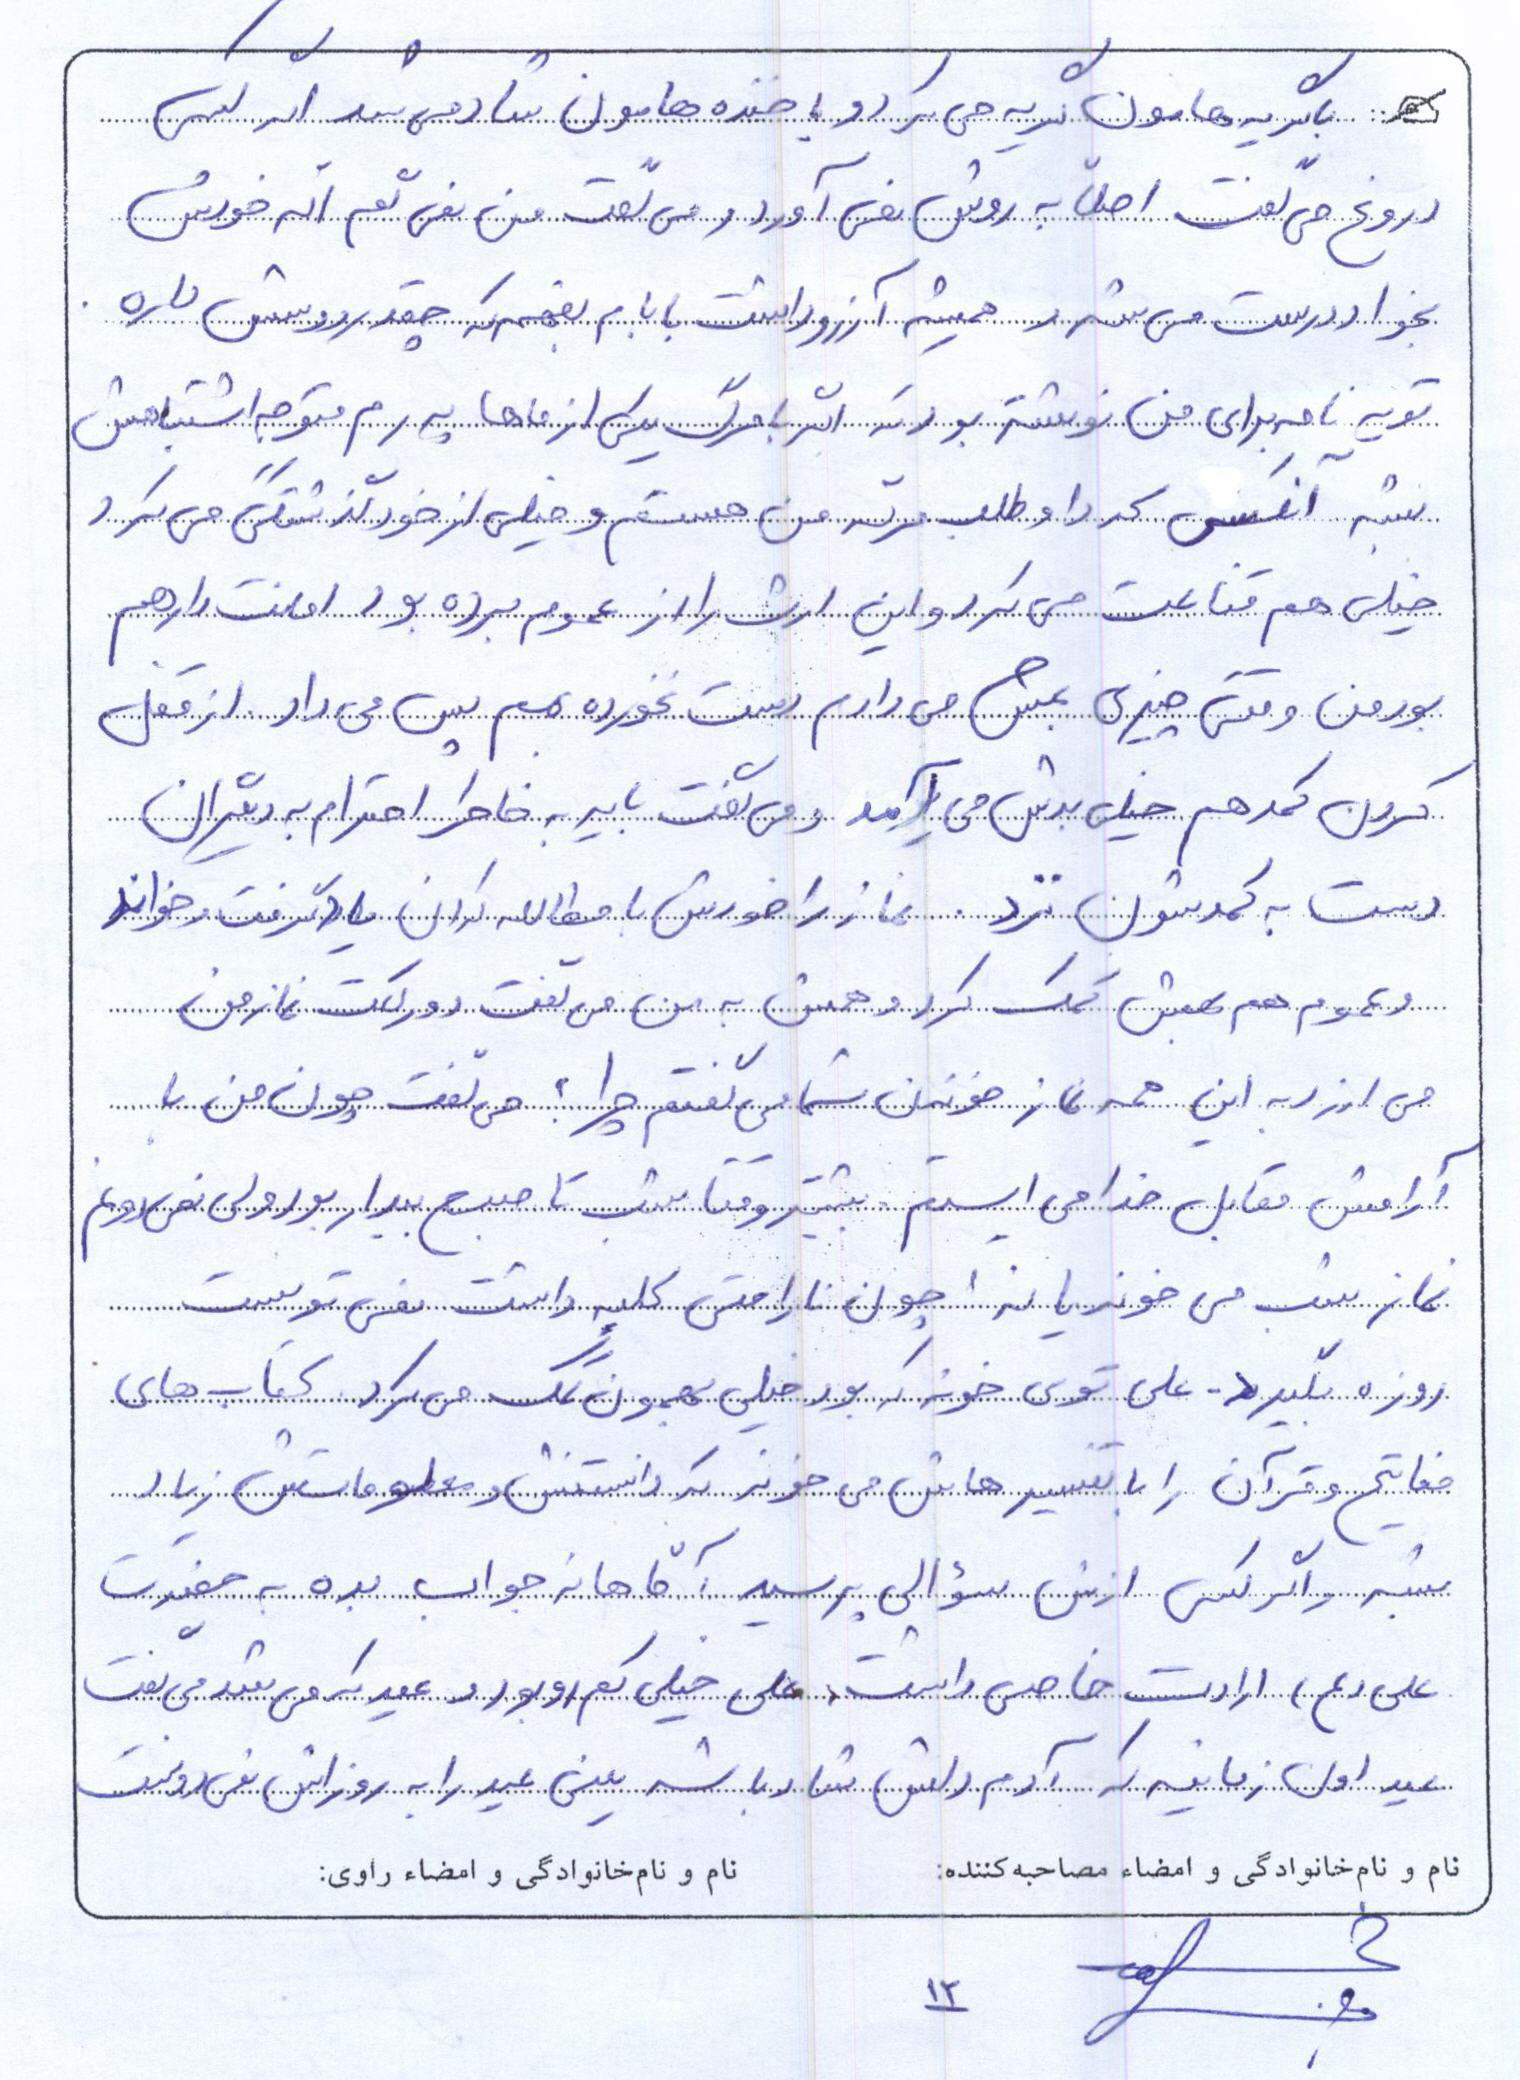 با گریه هامون گریه می کرد و با خنده هامون شاد می شد اگر کسی
دروغ می گفت اصلاً به روش نمی آورد و می گفت من نمی گم اگه خودش
بخواد درست می شه و همیشه آرزو داشت بابام بفهمه که چقدر دوستش داره.
تو یه نامه برای من نوشته بود که اگر با مرگ یکی از ماها پدرم متوجه اشتباهش
بشه آنکسی که داوطلب مرگه من هستم و خیلی از خود گذشتگی می کرد
خیلی هم قناعت می کرد و این ارث را از عموم برده بود امانت دار هم
بود من وقتی چیزی بهش می دادم دست نخورده بهم پس می داد. از قفل
کردن کمد هم خیلی بدش می آمد و می گفت باید به خاطر احترام به دیگران
دست به کمدشون نزد. نماز را خودش با مطالعه کردن یاد گرفت و خواند
و عموم هم بهش کمک کرد و همش به من می گفت دو رکعت نماز من
می ارزد به این همه نماز خوندن شما می گفتم چرا؟ می گفت چون من با
آرامش مقابل خدا می ایستم. بیشتر وقتا شب تا صبح بیدار بود ولی نمی دونم
نماز شب می خوند یا نه! چون ناراحتی کلیه داشت نمی تونست
روزه بگیرد. علی توی خونه که بود خیلی بهمون کمک می کرد. کتاب های
مفاتیح و قرآن را با تفسیرهایش می خوند که دانستنش و معلوماتش زیاد
بشه و اگر کسی ازش سؤالی پرسید آگاهانه جواب بده به حضرت
علی (ع) ارادت خاصی داشت. علی خیلی کم رو بود و عید که می شد می گفت
عید اون زمانیه که آدم دلش شاد باشه یعنی عید را به روزاش نمی دونست
نام و نام‌خانوادگی و امضاء مصاحبه‌کننده: نام و نام‌خانوادگی و امضاء راوی:
۱۲